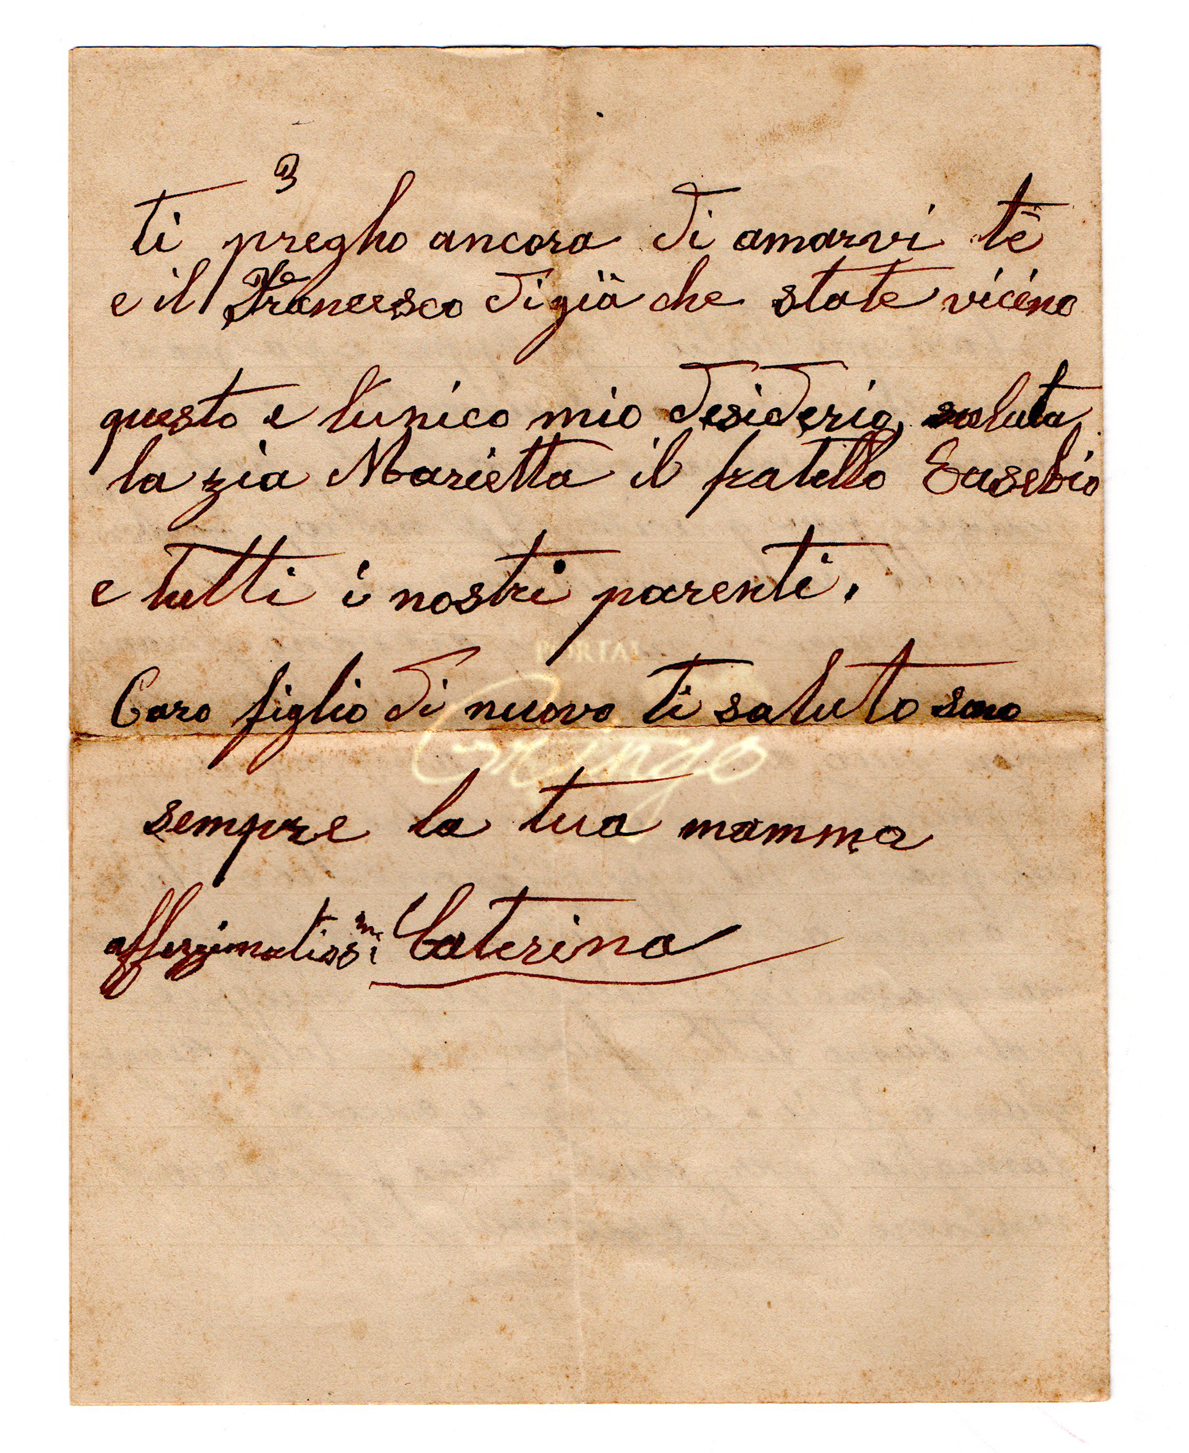 3
ti pregho ancora di amarvi tè
e il Francesco digià che state vicino
questo e l'unico mio desiderio, saluta
la zia Marietta il fratello Eusebio
e tutti i nostri parenti.
PORTAL
Caro figlio di nuovo ti saluto sono
Gringo
sempre la tua mamma
affezzionatissima Caterina